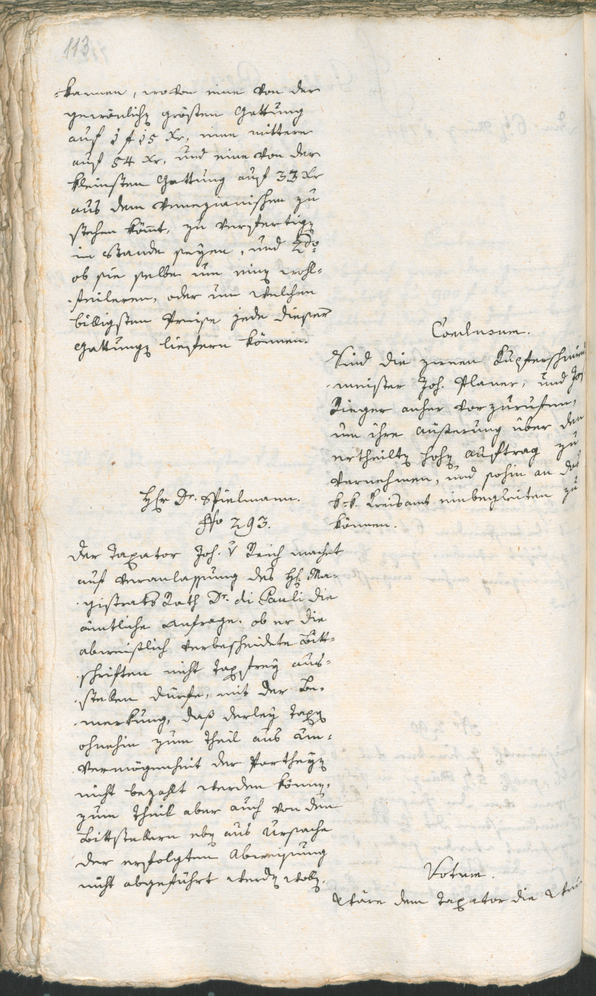 113
kannen, wovon eine von der
gewönlich größten Gattung
auf 1 f 15 Xr, eine mittere
auf 54 Xr, und eine von der
kleinsten Gattung auf 33 Xr
aus dem Venezianischen zu
stehen kömt, zu verfertigen
im Stande seyen, und 2do
ob sie selbe um eine wohl-
feileren, oder um welchen
billigsten Preise jede dieser
Gattungen liefern können.
Conclusum.
Sind die zween Kupferschmid
meister Joh. Planer, und Jos
Rieger anher vorzurufen,
um ihre Äußerung über den
ertheilten hohen Auftrag zu
vernehmen, und sohin an das
k. k. Kreisamt einbegleiten zu
können.
Hhr Dr. Spielmann.
Nro 293.
Der Taxator Joh. v Reich macht
auf Veranlassung des Hh Ma-
gistrats Rath Dr. di Pauli die
ämtliche Anfrage. ob er die
abweislich verbescheidete Bitt-
schriften nicht taxfrey aus-
geben dürfe, mit der Be-
merkung, daß derley Taxen
ohnehin zum Theil aus Un-
vermögenheit der Partheyen
nicht bezahlt werden können,
zum Theil aber auch von den
Bittstellern eben aus Ursache
der erfolgten Abweisung
nicht abgeführt werden wollen.
Votum.
Wäre dem Taxator die